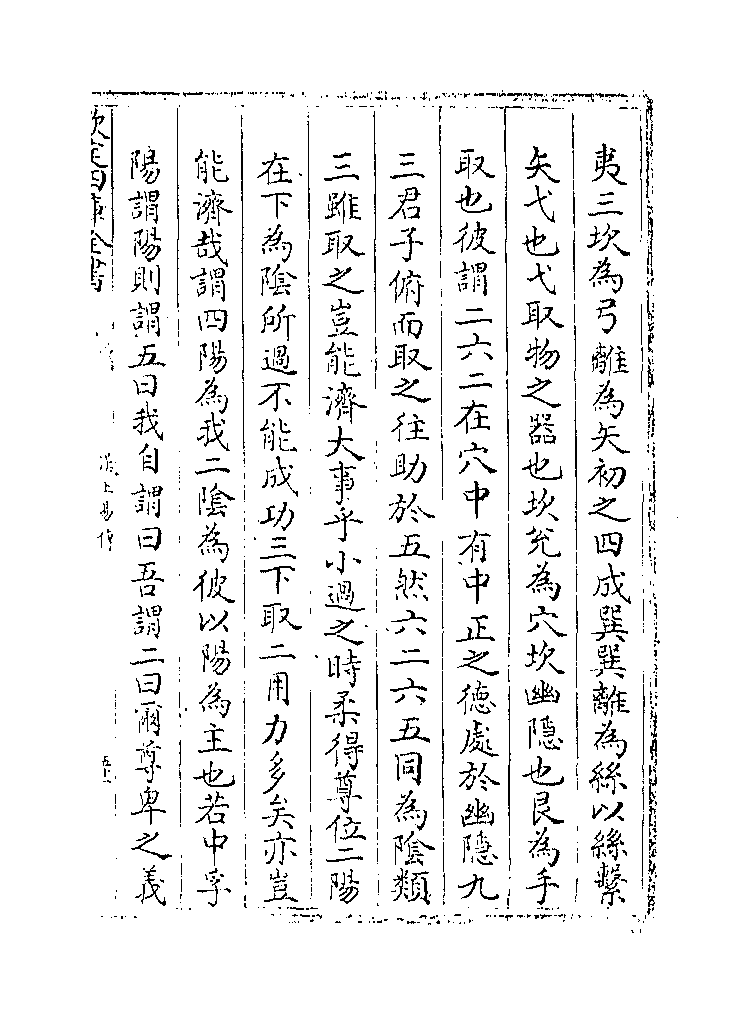 夷三坎為弓離為矢初之四成巽巽離為絲以絲繫
矢弋也弋取物之器也坎兊為穴坎幽隠也艮為手
取也彼謂二六二在穴中有中正之德處於幽隠九
三君子俯而取之往助於五然六二六五同為陰類
三雖取之豈能濟大事乎小過之時柔得尊位二陽
在下為陰所過不能成功三下取二用力多矣亦豈
能濟哉謂四陽為我二陰為彼以陽為主也若中孚
陽謂陽則謂五曰我自謂曰吾謂二曰爾尊卑之義
欽定四庫全書
漢上易傳